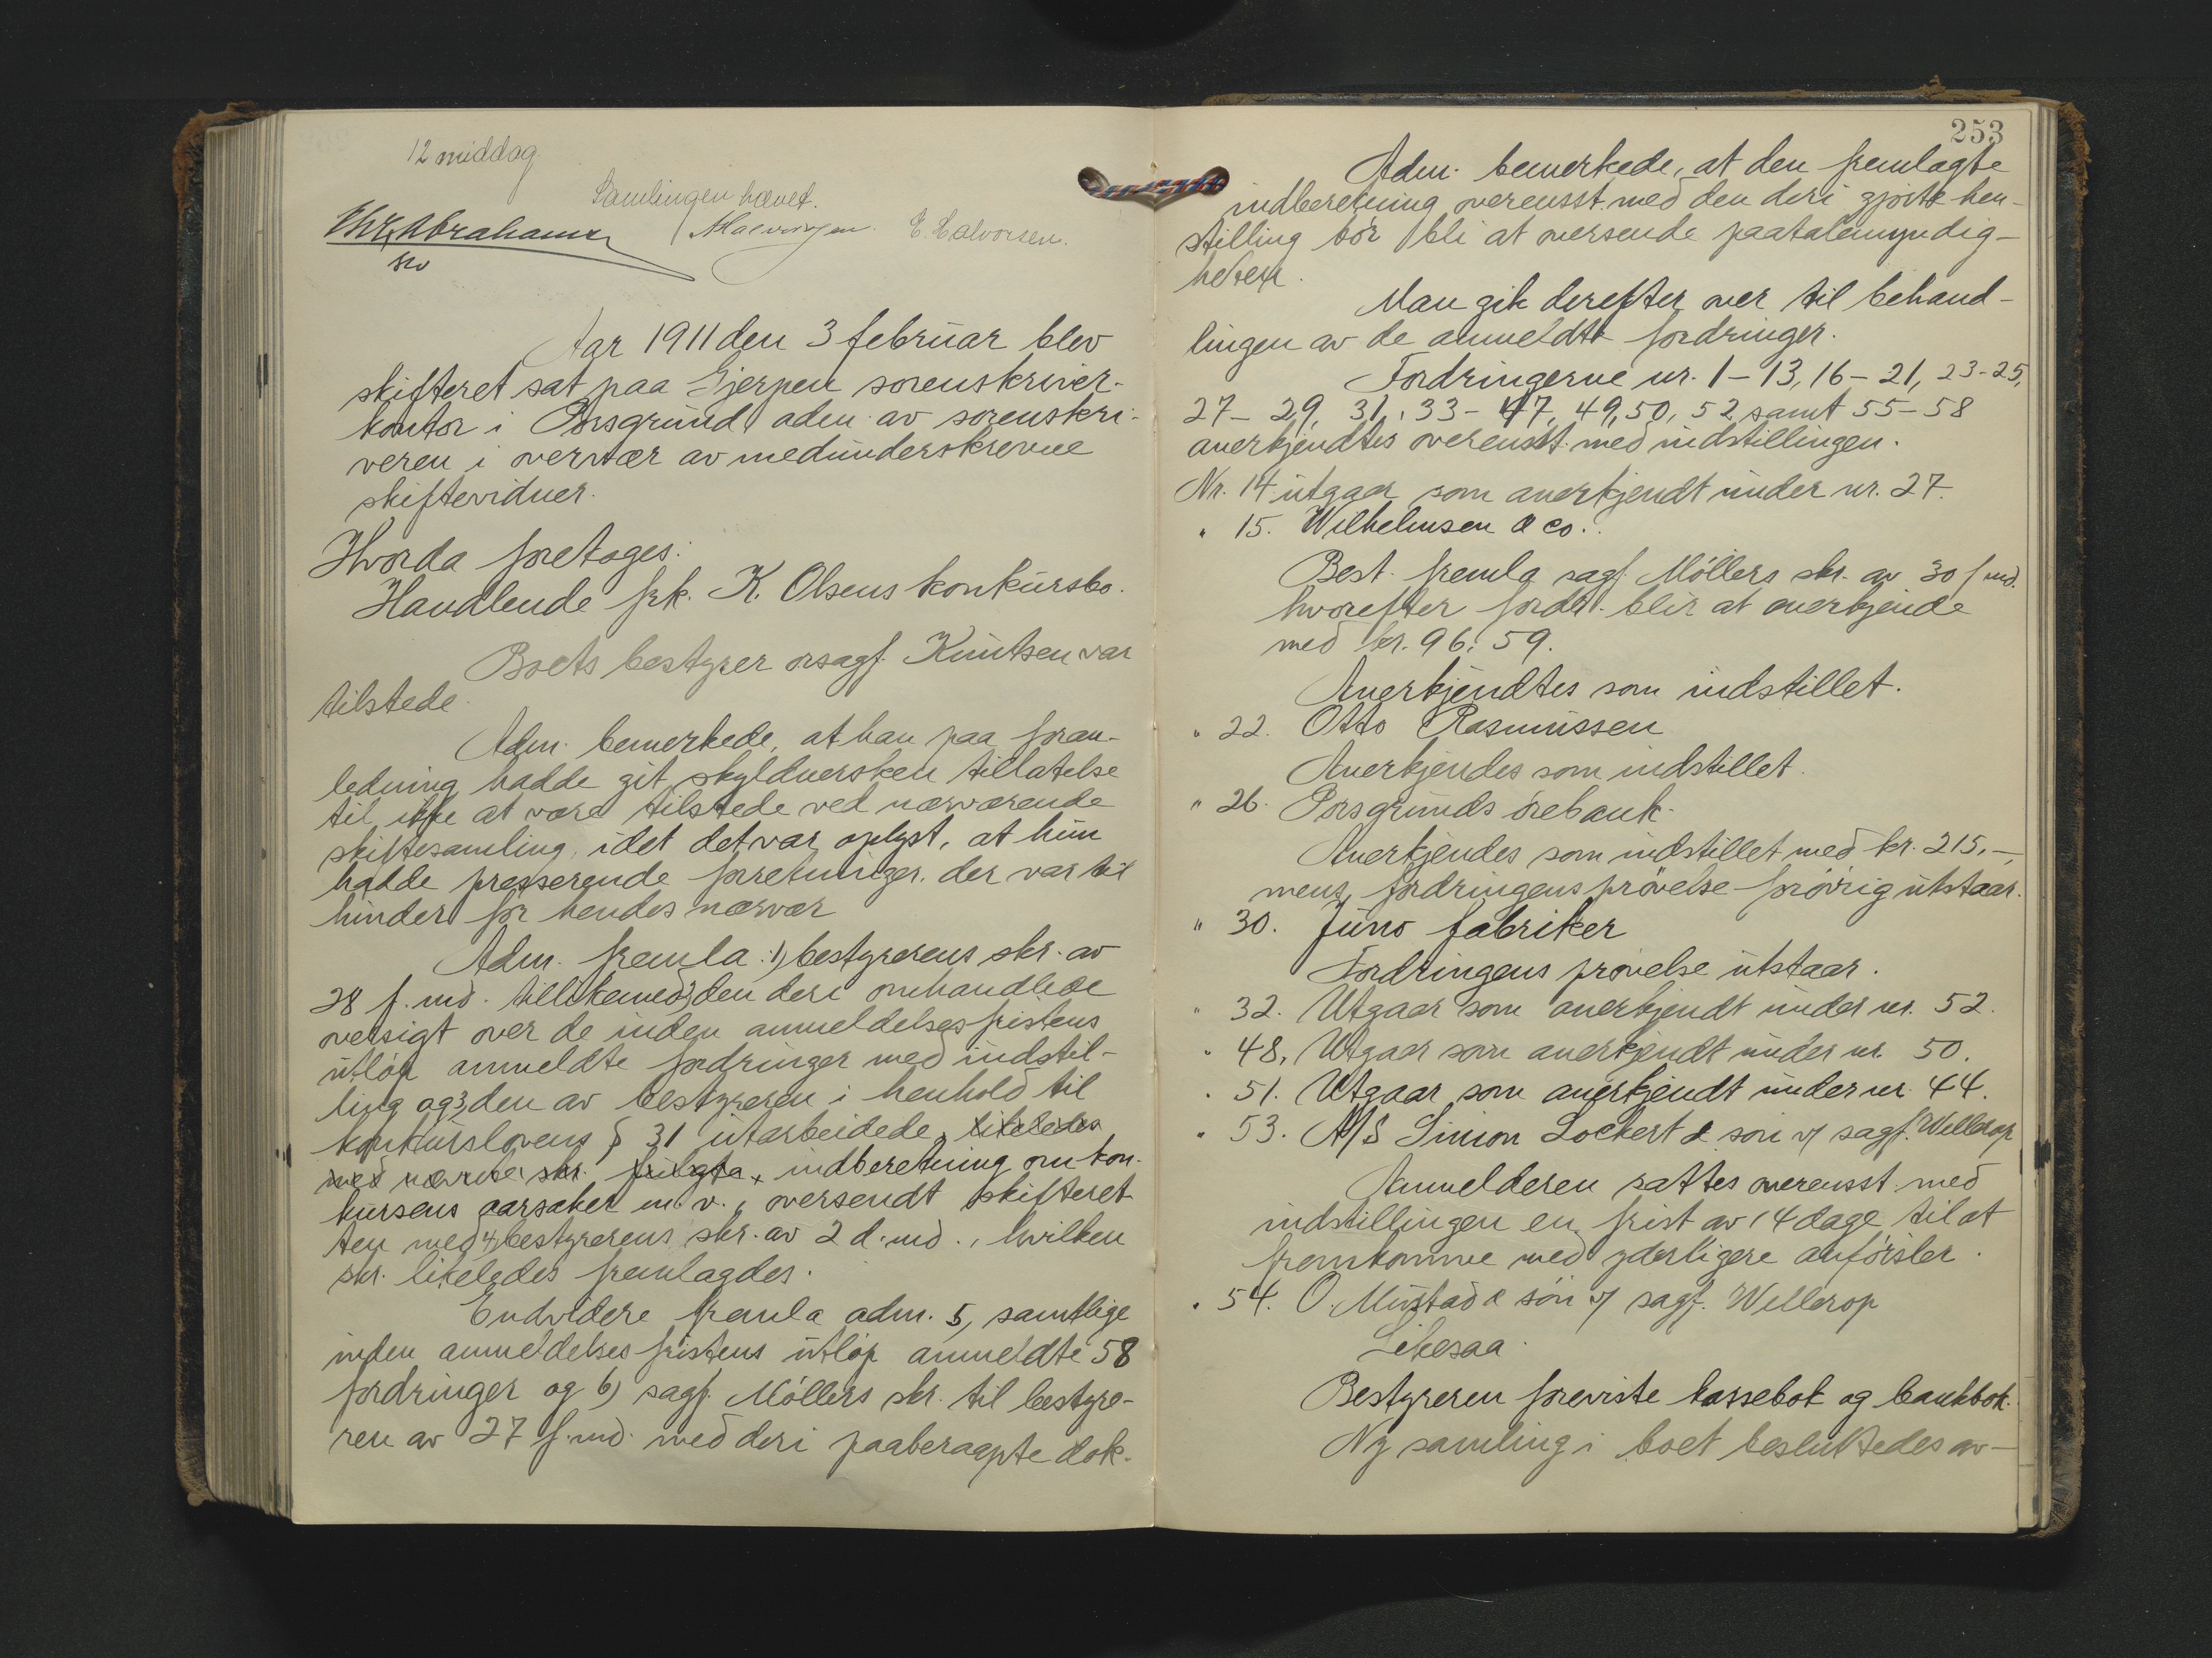 12 middag
Samlingen hævet.
Abrahams
E. Halvorsen.
Aar 1911 den 3 februar blev
skifteret sat paa Gjerpen sorenskriver-
kontor i Porsgrund adm. av sorenskri-
veren i overvær av medunderskrevne
skiftevidner.
Hvorda foretoges:
Handlende frk. K. Olsens konkursbo.
Boets bestyrer orsagf. Knutsen var
tilstede.
Adm. bemerkede, at han paa foran-
ledning hadde git skyldnersken tillatelse
til ikke at være tilstede ved nærværende
skiftesamling, idet det var oplyst, at hun
hadde presserende forretninger, der var til
hinder for hendes nærvær
Adm. fremla 1) bestyrerens skr. av
28 f. md. tillikemed 2) den deri omhandlede
oversigt over de inden anmeldelsesfristens
utløp anmeldte fordringer med indstil-
ling og 3) den av bestyreren i henhold til
konkurslovens § 31 utarbeidede, likeledes
med nævnte skr. indberetning om kon-
kursens aarsaker m. v., oversendt skifteret-
ten med 4) bestyrerens skr. av 2 d. md., hvilken
skr. likeledes fremlagdes.
Endvidere fremla adm. 5, samtlige
inden anmeldelsesfristens utløp anmeldte 58
fordringer og 6) sagf. Möllers skr. til bestyre-
ren av 27 f. md. med deri paaberaapte dok.
253
Adm. bemerkede, at den fremlagte
indberetning overensst. med den deri gjorte hen-
stilling bör bli at oversende paatalemyndig-
heten.
Man gik derefter over til behand-
lingen av de anmeldte fordringer.
Fordringerne nr. 1-13, 16-21, 23-25,
27-29, 31, 33-47, 49, 50, 52 samt 55-58
anerkjendtes overensst. med indstillingen.
Nr. 14 utgaar som anerkjendt under nr. 27.
" 15. Wilhelmsen & co.
Best. fremla sagf. Möllers skr. av 30 f. md.
hvorefter fordr. blir at anerkjende
med kr. 96. 59.
Anerkjendtes som indstillet.
" 22. Otto Rasmussen
Anerkjendes som indstillet.
" 26. Porsgrunds örebank.
Anerkjendes som indstillet med kr. 215,-,
mens fordringens prövelse forövrig utstaar.
" 30. Juno fabriker
Fordringens prövelse utstaar.
" 32. Utgaar som anerkjendt under nr. 52.
" 48. Utgaar som anerkjendt under nr. 50.
" 51. Utgaar som anerkjendt under nr. 44.
" 53. A/S Simon Lockert & sön v/ sagf. Wellerop
Anmelderen sattes overensst. med
indstillingen en frist av 14 dage til at
fremkomme med yderligere anførsler.
" 54. O. Mustad & sön v/ sagf. Wellerop
Likesaa.
Bestyreren foreviste kassebok og bankbok.
Ny samling i boet besluttedes av-